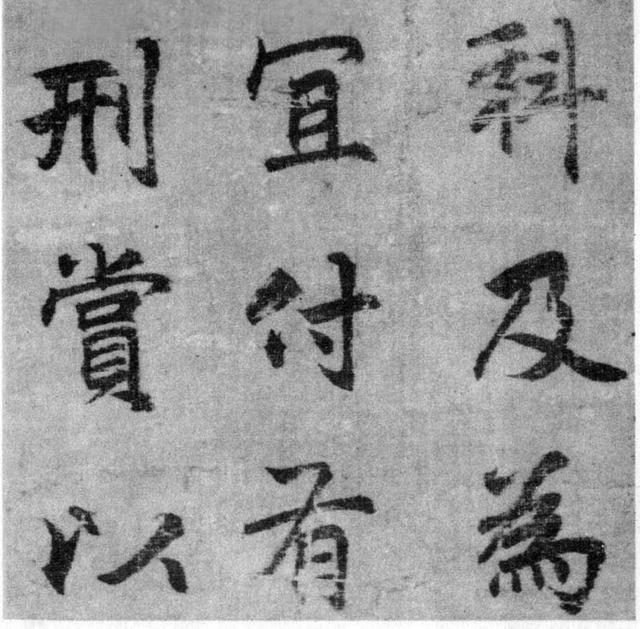 科及為
宜付有
刑賞以